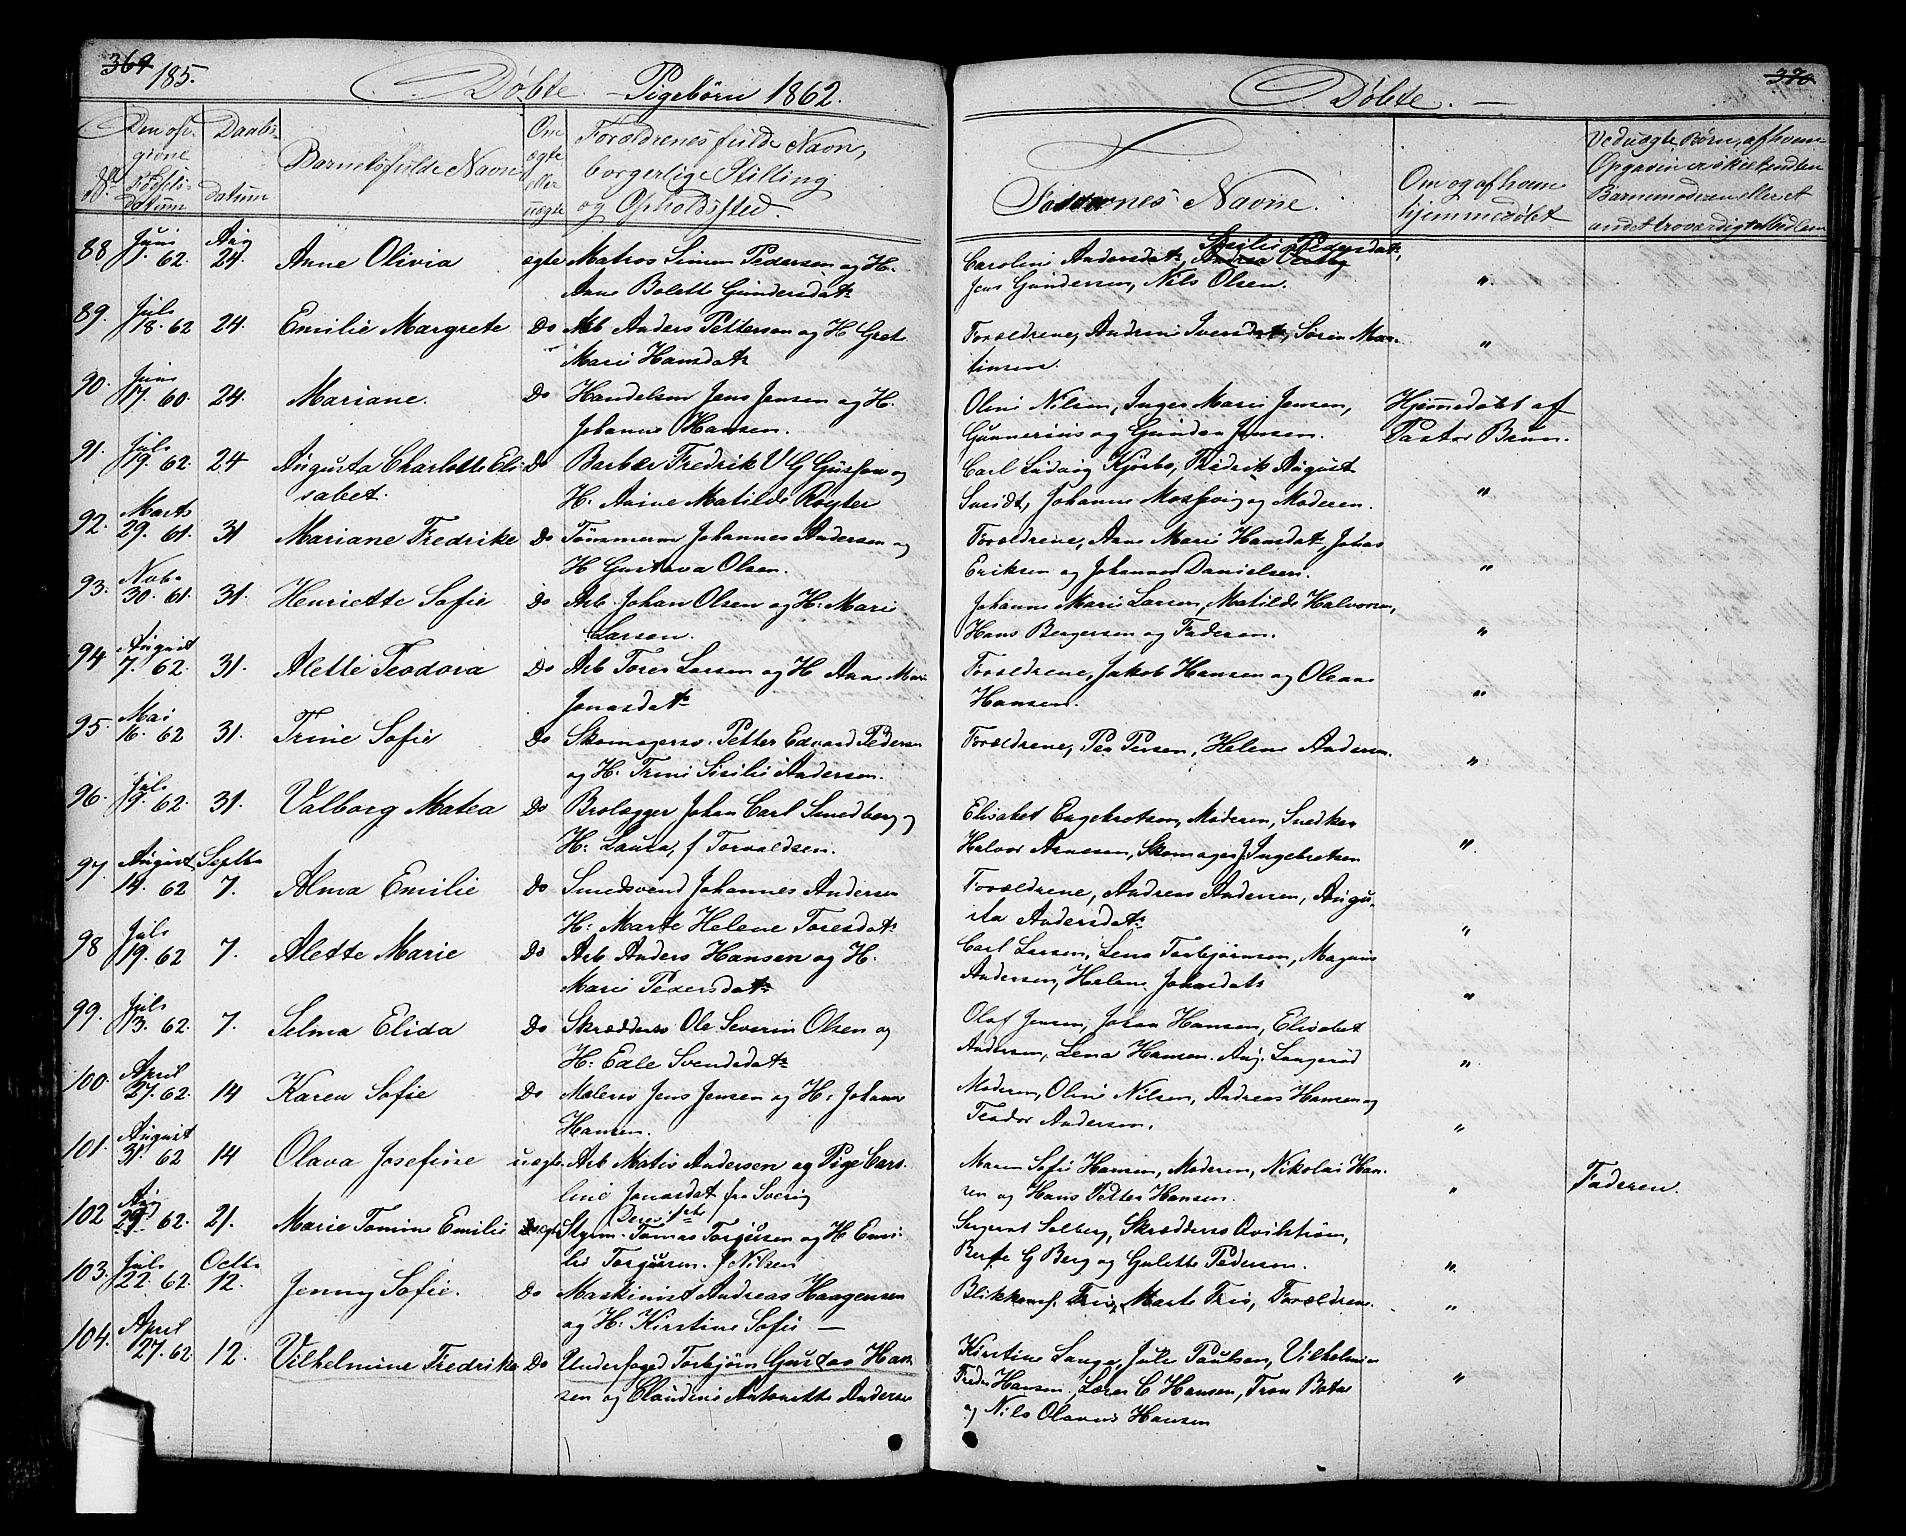 369 185. Døbte. — Pigebørn 1862. Døbte. — 370
No. Den opgivne Fødselsdatum Daabsdatum Barnets fulde Navn Om ægte eller uægte Forældrenes fulde Navn, borgerlige Stilling og Opholdssted. Faddernes Navne. Om og af hvem hjemmedøbt Ved uægte Børn, af hvem
88 Juni 1. 62. Aug 24. Anne Olivia ægte Matros Simen Pedersen og H. Carolini Andersdatr, Pedersdatr,
Anne Bolette Gundersdatr Jens Gundersen, Nils Olsen. "
89. Juli 18. 62 24. Emilie Margrete Do Arb Anders Pettersen og H Gret Forældrene, Andrini Iversdatr, Søren Mar-
Mari Hansdatr tinsen. "
90. Juni 17. 60. 24. Mariane. Do Handelsm Jens Jensen og H. Olini Nilsen, Inger Marie Jensen, Hjemmedøbt af
Johanne Hansen. Gunnerius og Gunder Jensen. Pastor Bruun.
91. Juli 19. 62. 24 Augusta Charlotte Eli- Do Barbær Fredrik V G og Carl Ludvig Kjørbo, Fredrik August
sabet. H. Anine Matilde Røyter Smidt, Johanne og Moderen. "
92. Marts 29. 61. 31 Mariane Fredrike Do Tømmerm Johannes Andersen og Forældrene, Ane Marie Hansdatr, Johas
H Gustava Olsen. Eriksen og Johannes Danielsen. "
93. Novb. 30. 61. 31. Henriette Sofie Do Arb. Johan Olsen og H. Marie Johanne Marie Larsen, Matilde Halvorsen,
Larsen. Hans Bergersen og Faderen. "
94 August 7. 62. 31. Alette Teodora Do Arb Tores Larsen og H Anne Mari Forældrene, Jakob Hansen og Oleane
Jonasdatr Hansen. "
95. Mai 16. 62 31. Trine Sofie Do Skomagersv. Petter Edvard Pedersen Forældrene, Per Persen, Helene Andersen.
og H. Trine Sisilie Andersen. "
96. Juli 9. 62. 31. Valborg Matea Do Brolægger Johan Carl Smedberg og Elisabet Engebretsen, Moderen, Snedker
H: Laura, f Torvaldsen. Halvor Arnesen, Skomager J. Ingebretsen "
97. August 14. 62 Septbr 7. Alma Emilie Do Smedsvend Johannes Andersen Forældrene, Andreas Andersen, Augu-
H: Marte Helene Toresdatr sta Andersdatr "
98 Juli 19. 62 7. Alette Marie Do Arb Anders Hansen og H. Carl Larsen, Lena Torbjørnsen, Magnus
Marie Pedersdatr Andersen, Helene Johnsdatr "
99. Juli 13. 62. 7. Selma Elida Do Skræddersv Ole Severin Olsen og Olaf Jensen, Johan Hansen, Elisabet
H: Edle Svendsdatr Andersen, Lena Hansen. Aug. Langerød "
100. April 27. 62. 14 Karen Sofie Do Malersv Jens Jensen og H: Johanne Moderen, Olini Nilsen, Andreas Hansen og
Hansen. Teodor Andersen. "
101. August 31. 62 14 Olava Josefine uægte Arb Matis Andersen og Pige Caro- Maren Sofie Hansen, Moderen, Nikolai Han-
line Jonasdat fra Sverig sen og Hans Petter Hansen. " Faderen.
102 Aug 29. 62. 21. Marie Tomine Emilie ægte Styrm. Tomas Torgersen og H Emi- Sergeant Solberg, Skræddersv Qvilstrøm,
lie Torgersen. f Nilsen Berte G Berg og Gulette Pedersen. "
103. Juli 22. 62. Octbr 12. Jenny Sofie. Do Maskinist Andreas Haagensen Blikkensl. Friis, Marte Friis, Forældrene. "
og H: Kirstine Sofie —
104. April 27. 62 12. Vilhelmine Fredrike Do Underfoged Torbjørn Gustav Han- Kirstine Lange, Julie Paulsen, Vilhelmine
sen og Claudine Antonette Andersen Fredr Hansen, C Hansen, "
og Nils Olavus Hansen